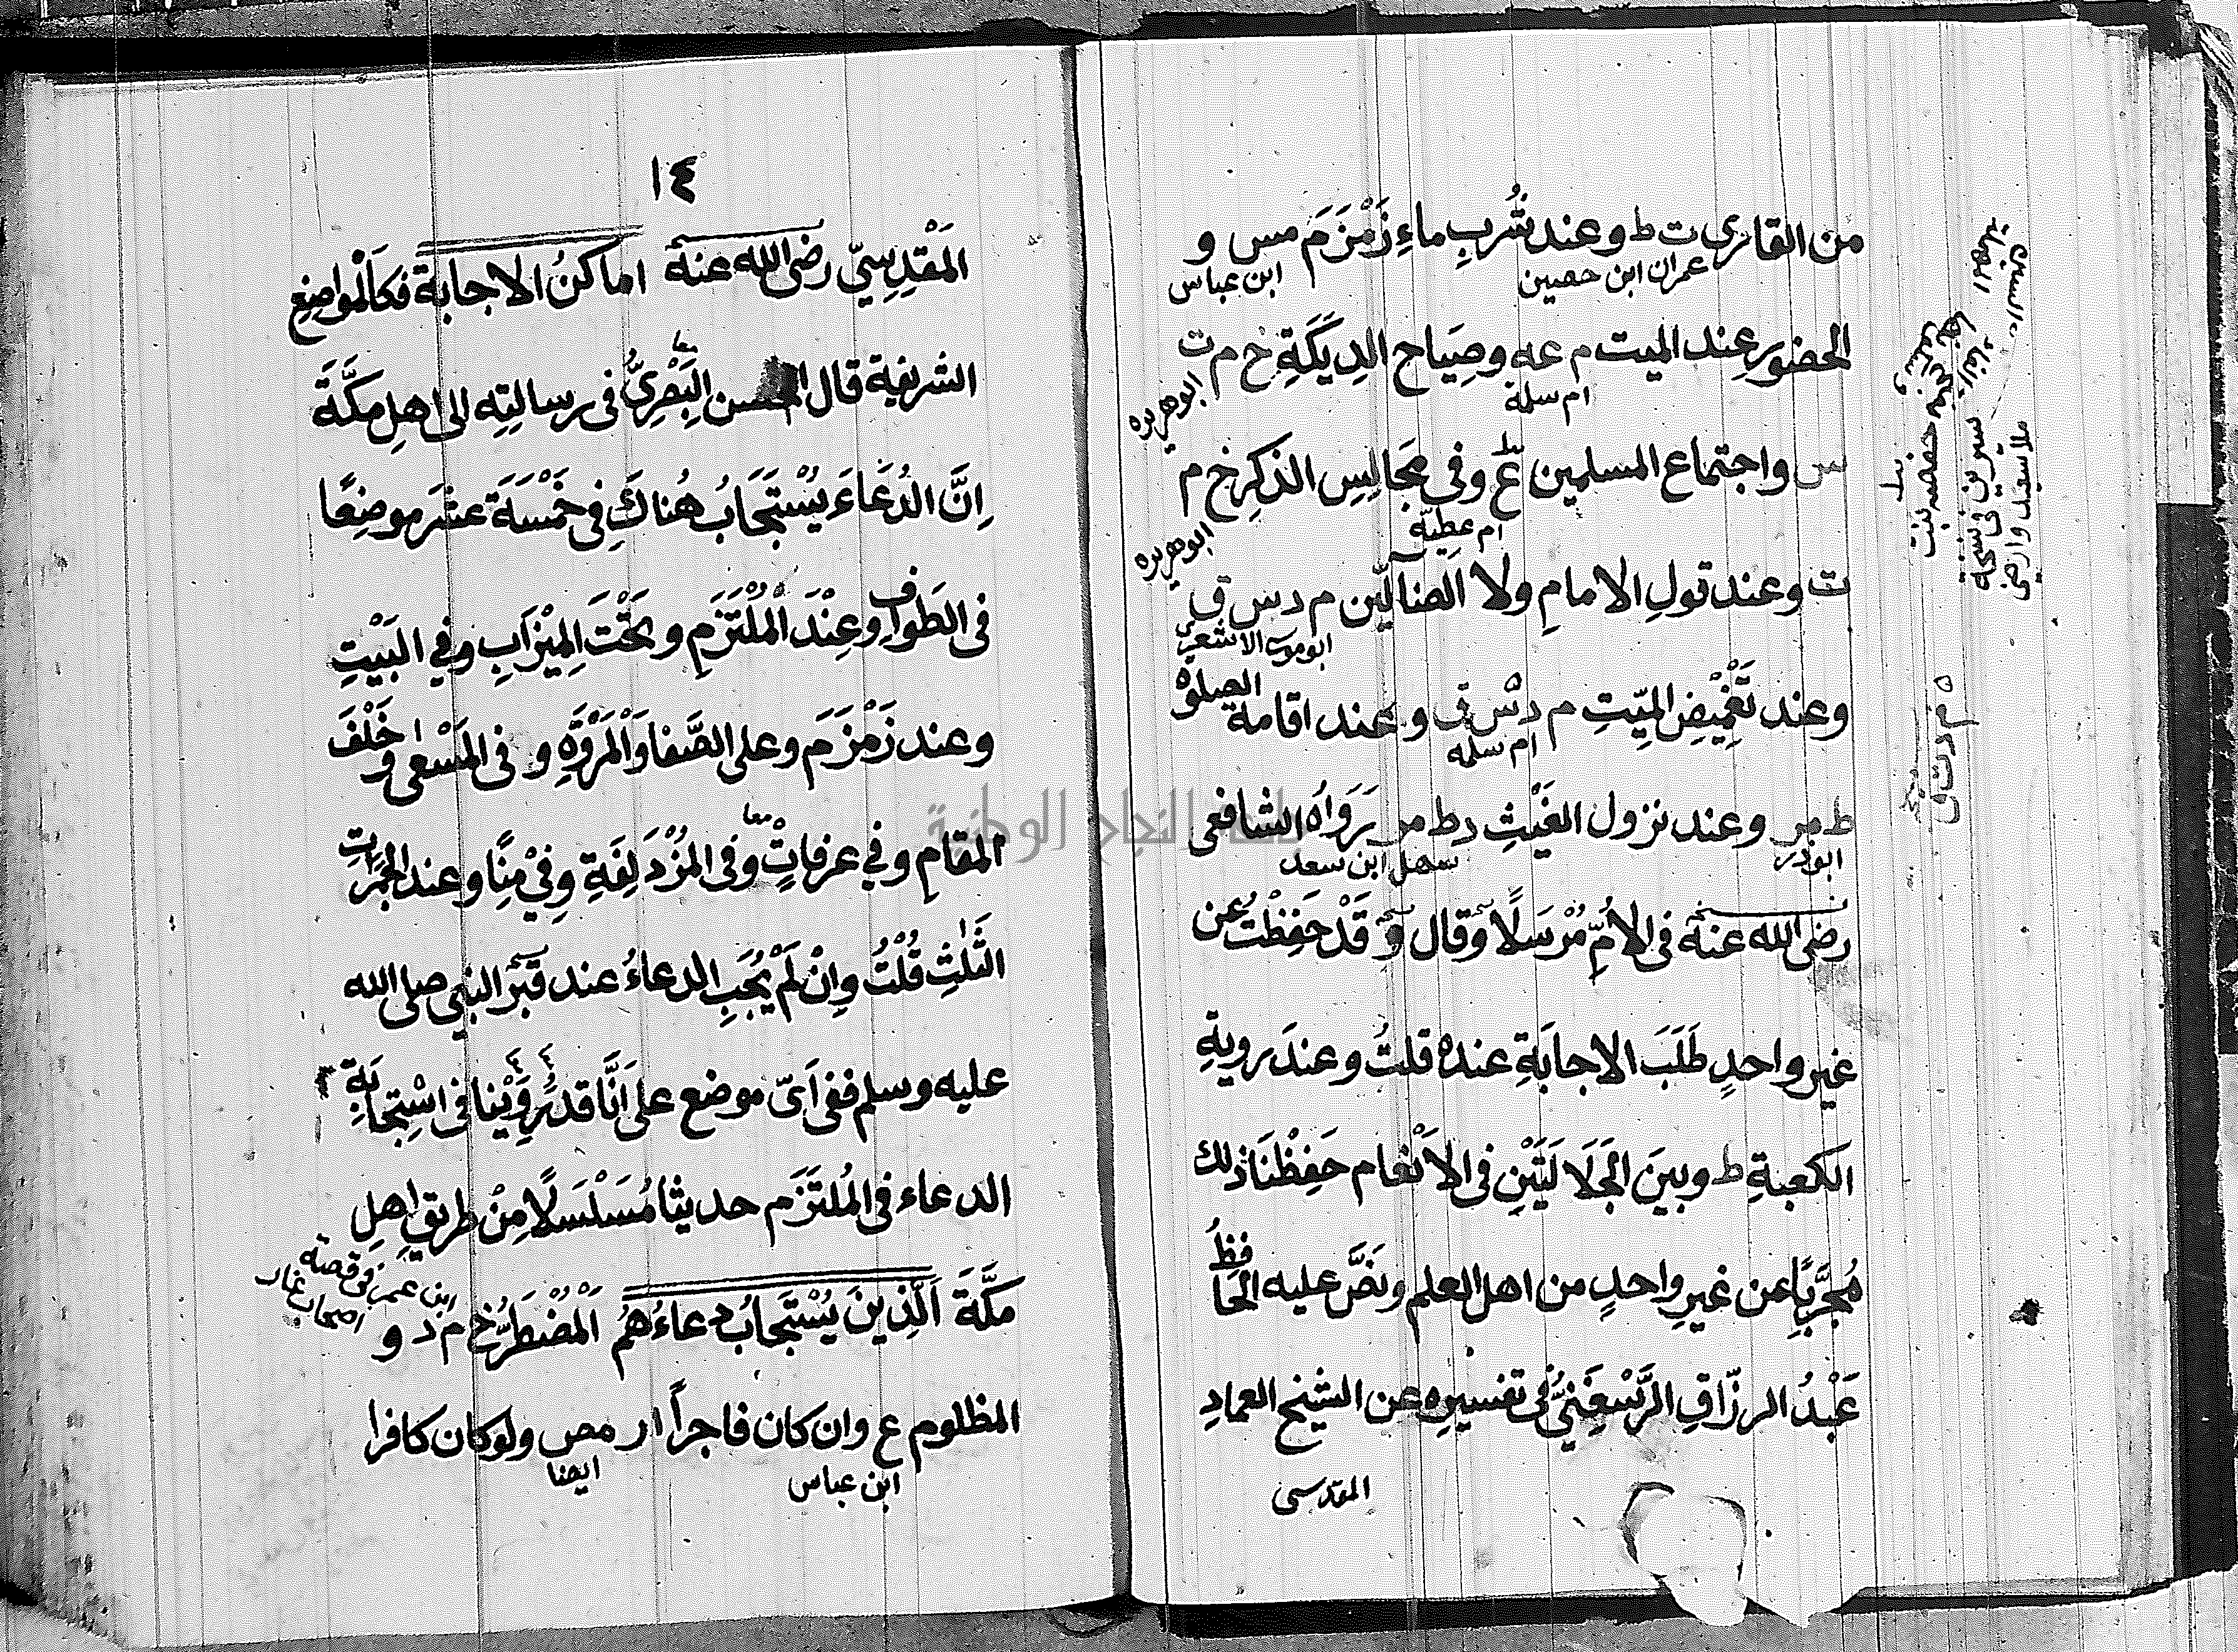 من القاري ت ط وعند شُربِ ماءِ زَمْزَمَ مس و
عمران ابن حصين
ابن عباس
الحضورِ عِند الميت م عه وصِيَاح الدِيَكَةِ خ م ت
ام سلمة
ابو هريره
س واجتماع المسلمين ع وفى مَجَالِسِ الذكرِ خ م
ام عطيّة
ابو هريره
ت وعند قولِ الامامِ ولا الضالّين م د س ق
ابو موسى الاشعري
وعند تَغْمِيْضِ الميّتِ م د س ق وعند اقامة الصلوة
ام سلمه
ط مر وعند نزول الغَيْثِ د ط مر رَوَاهُ الشافعى
ابو ذر
سهل ابن سعد
رضى الله عنه فى الاُمِّ مُرْسَلًا وقال وقَدْ حَفِظْتُ عن
غير واحدٍ طَلَبَ الاجابَةِ عنده قلتُ وعندَ رويةِ
الكعبةِ ط وبينَ الجَلَالَتَيْنِ فى الاَنْعَام حَفِظْنَا ذلك
مُجَرَّبًا عن غيرِ واحدٍ من اهل العلم ونَصَّ عليه الحَافِظُ
عَبْدُ الرزّاقِ الرَّسْعَنِيُّ فى تفسيره عن الشيخ العمادِ
المقدسى
١٤
المَقْدِسِيّ رضى الله عنه اماكنُ الاجابة فكالمواضِعِ
الشريفة قال الحسن البَصْرِيُّ فى رسالتِه الى اهلِ مكَّةَ
معا
اِنَّ الدُعَاءَ يُسْتَجَابُ هُناكَ فِى خَمْسَةَ عشَر موضِعًا
فى الطَوَافِ وعِنْدَ الْمُلْتَزَمِ وتَحْتَ الِميْزَابِ وفِي البَيْتِ
وعند زَمْزَمَ وعلى الصَّفا وَالْمَرْوَةِ وفى المَسْعى وخَلْفَ
المقامِ وفي عرفاتٍ وفى المُزْدَلِفَةِ وفِيْ مِنًا وعند الجَمَرَاتِ
معا
الثَّلٰثِ قُلْتُ وإنْ لَمْ يُجَبِ الدعاءُ عند قَبْرِ النبي صلى الله
عليه وسلم ففى اَىّ موضع على اَنَّا قد رُوِّيْنا فى اسْتِجَابَةِ
الدعاء فى المُلتَزَم حديثا مُسَلْسَلًا مِنْ طريقِ اهلِ
مكَّةَ الَّذِينَ يُسْتَجابُ دعاءُهُم الْمُضْطَرُّ خ م د و
ابن عمر فى قصة
اصحاب غار
المظلوم ع وان كان فاجراً ا ر مص ولو كان كافرا
ابن عباس
ايضا
جامعة النجاح الوطنية